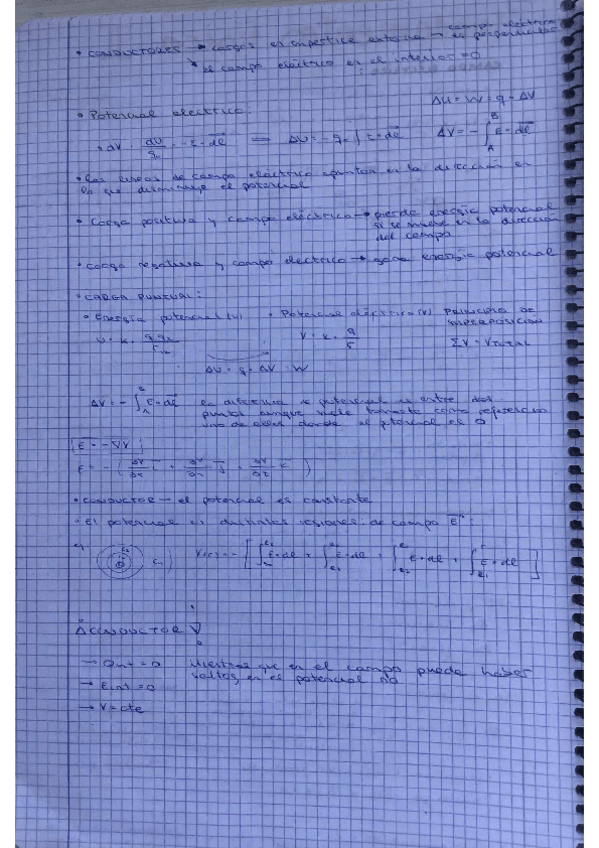 campo eléctrico
• CONDUCTORES → cargas en superficie externa → es perpendicular
↘ el campo eléctrico en el interior = 0
ΔU = W = q · ΔV
• Potencial eléctrico:
• dV = dU/q₀ = -E · dl ⟹ ΔU = -q₀ ∫ E · dl ΔV = -∫_A^B E · dl
• Las líneas de campo eléctrico apuntan en la dirección en
la que disminuye el potencial
• Carga positiva y campo eléctrico → pierde energía potencial
si se mueve en la dirección
del campo
• Carga negativa y campo eléctrico → gana energía potencial
• CARGA PUNTUAL:
• Energía potencial (U) • Potencial eléctrico (V) PRINCIPIO DE
SUPERPOSICIÓN
V = k · q/r
ΣV = V TOTAL
ΔU = q · ΔV = W
ΔV = -∫_A^B E · dl diferencia de potencial es entre dos
puntos aunque suele tomarse como referencia
uno de ellos donde el potencial es 0
E = -∇V
• CONDUCTOR — el potencial es constante
• El potencial en distintas regiones de campo E:
CONDUCTOR
→ Qint = 0 Mientras que en el campo puede haber
saltos, en el potencial no
→ Eint = 0
→ V = cte